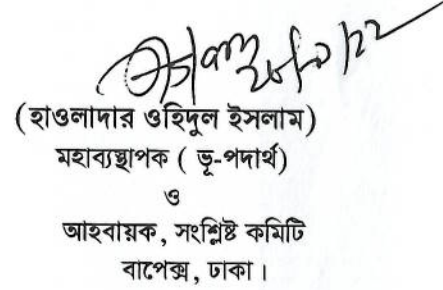 (হাওলাদার ওহিদুল ইসলাম)
মহাব্যস্থাপক ( ভূ-পদার্থ)
ও
আহবায়ক, সংশ্লিষ্ট কমিটি
বাপেক্স, ঢাকা।